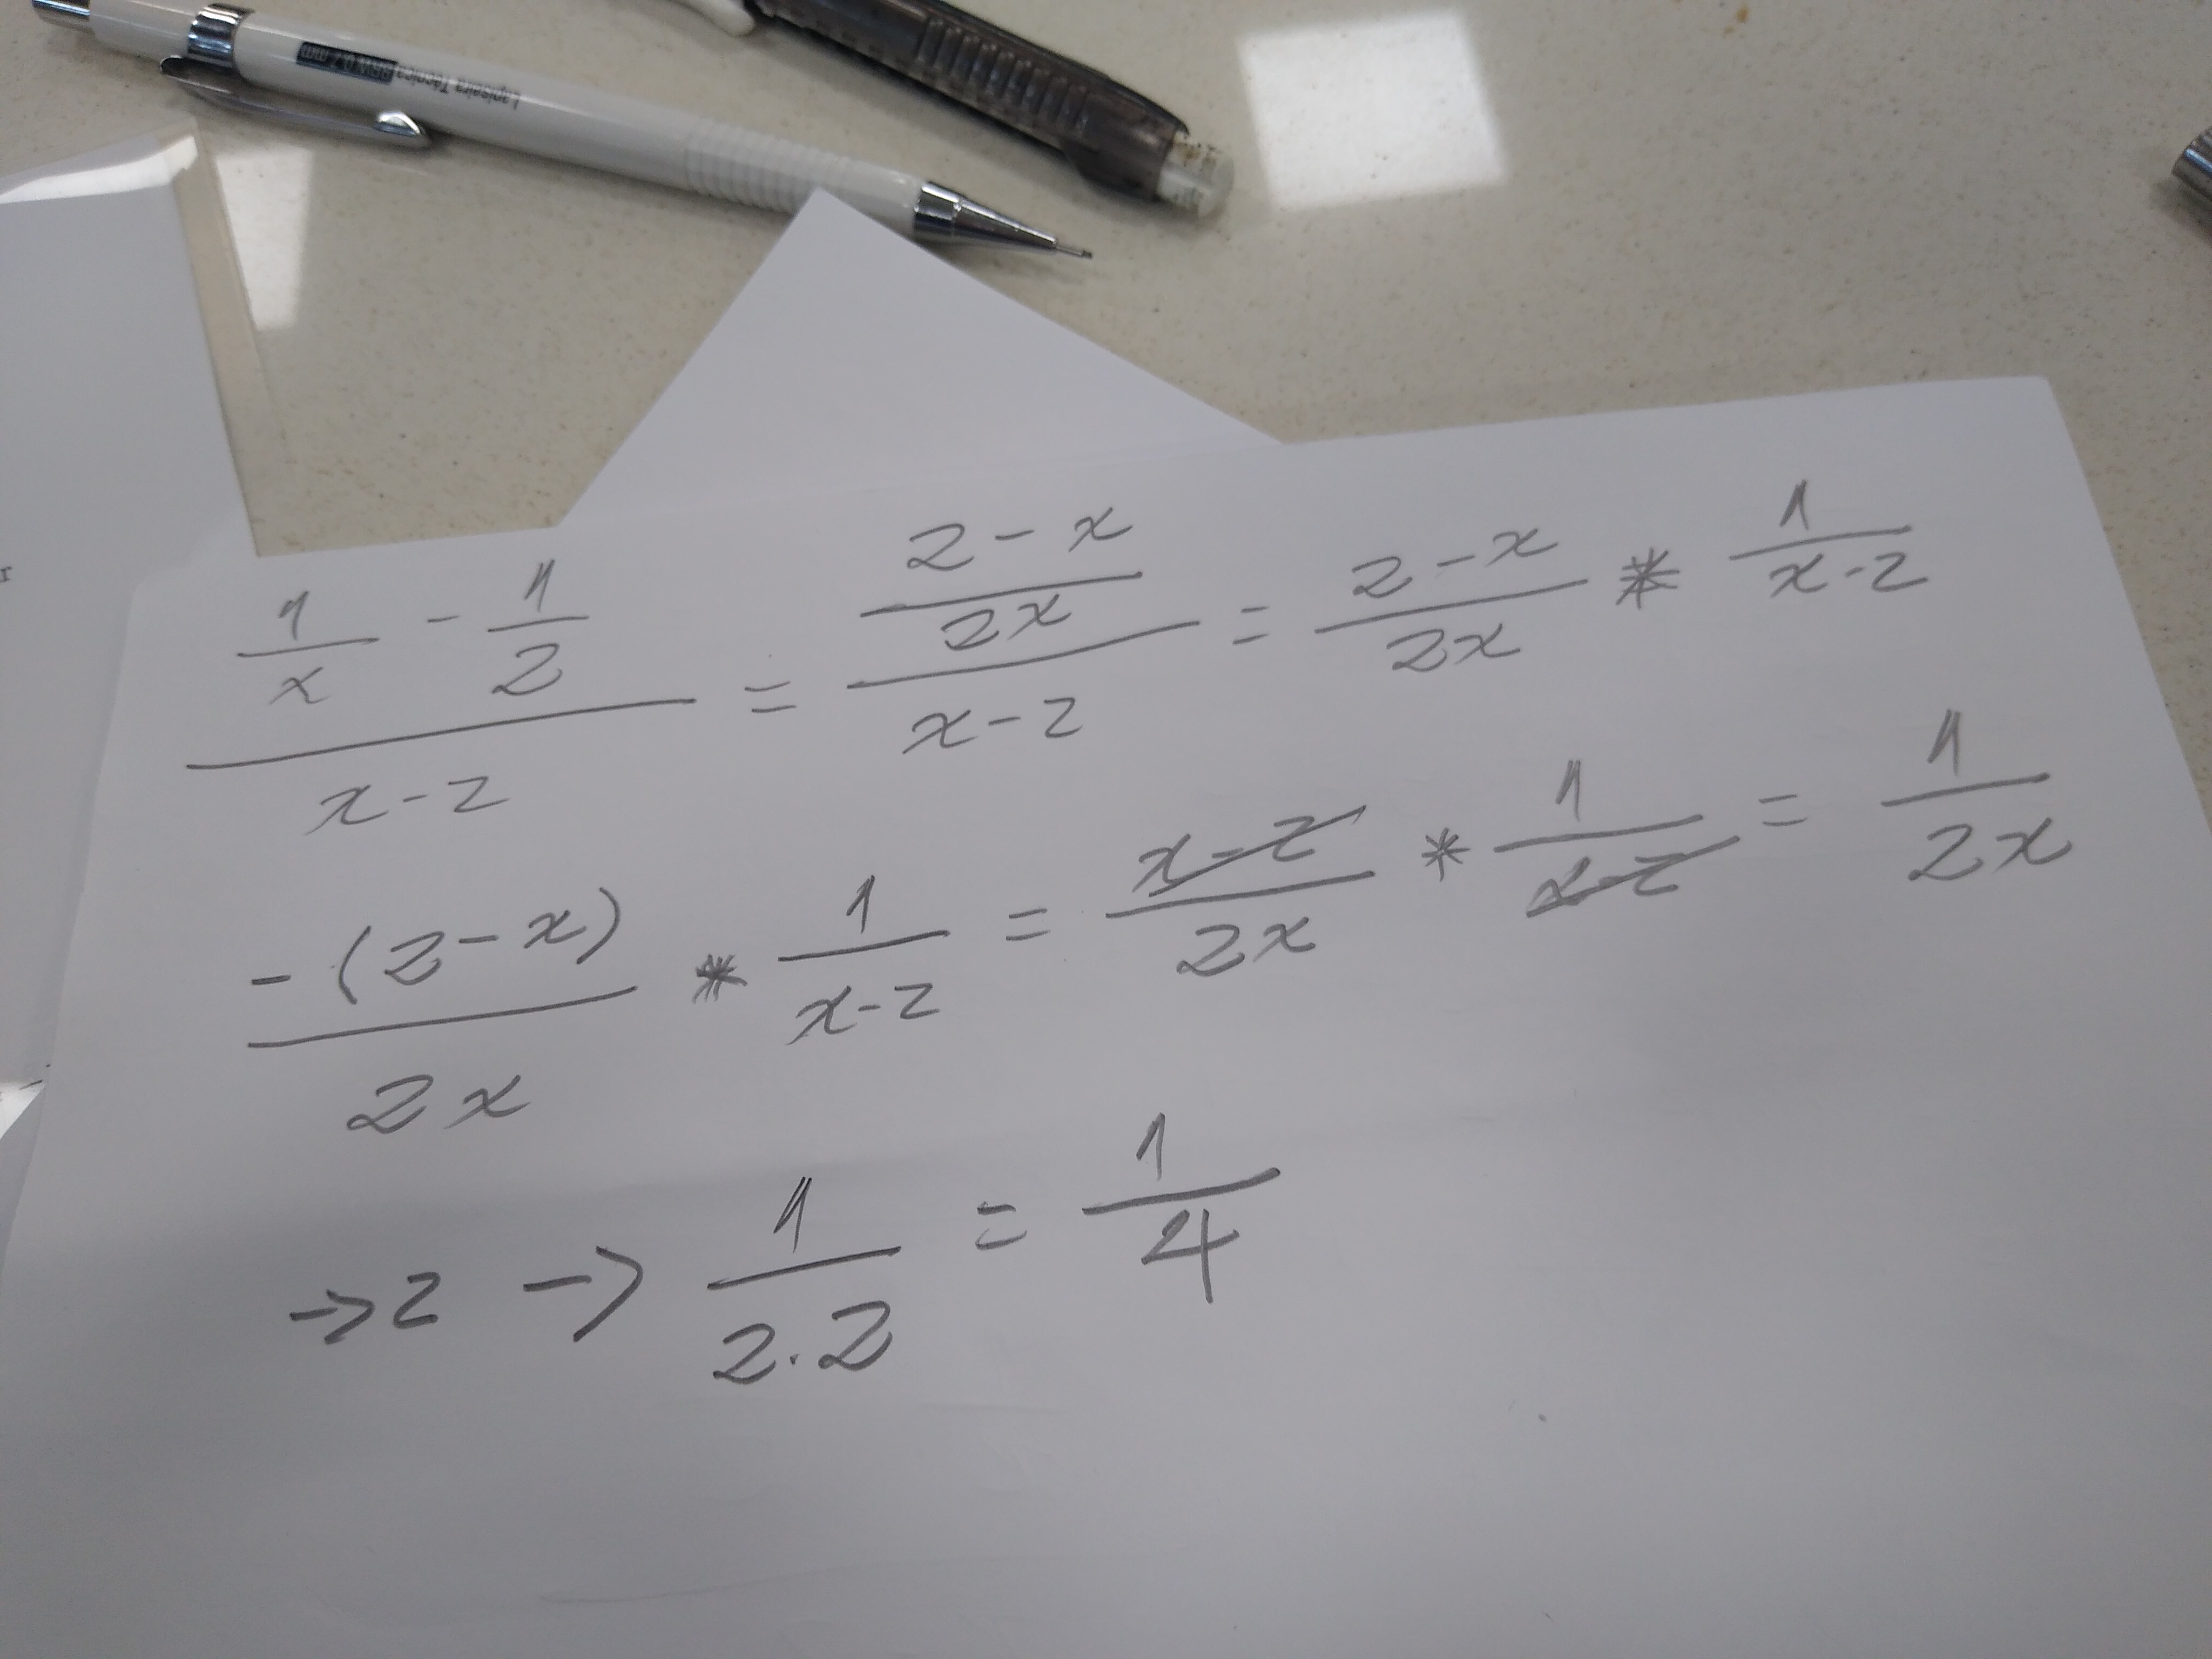 Lapiseira Técnica 0.7 mm
1/x - 1/2 / x-2 = 2-x / 2x / x-2 = 2-x / 2x * 1 / x-2
-(2-x) / 2x * 1 / x-2 = x-2 / 2x * 1 / x-2 = 1 / 2x
->2 -> 1 / 2.2 = 1 / 4